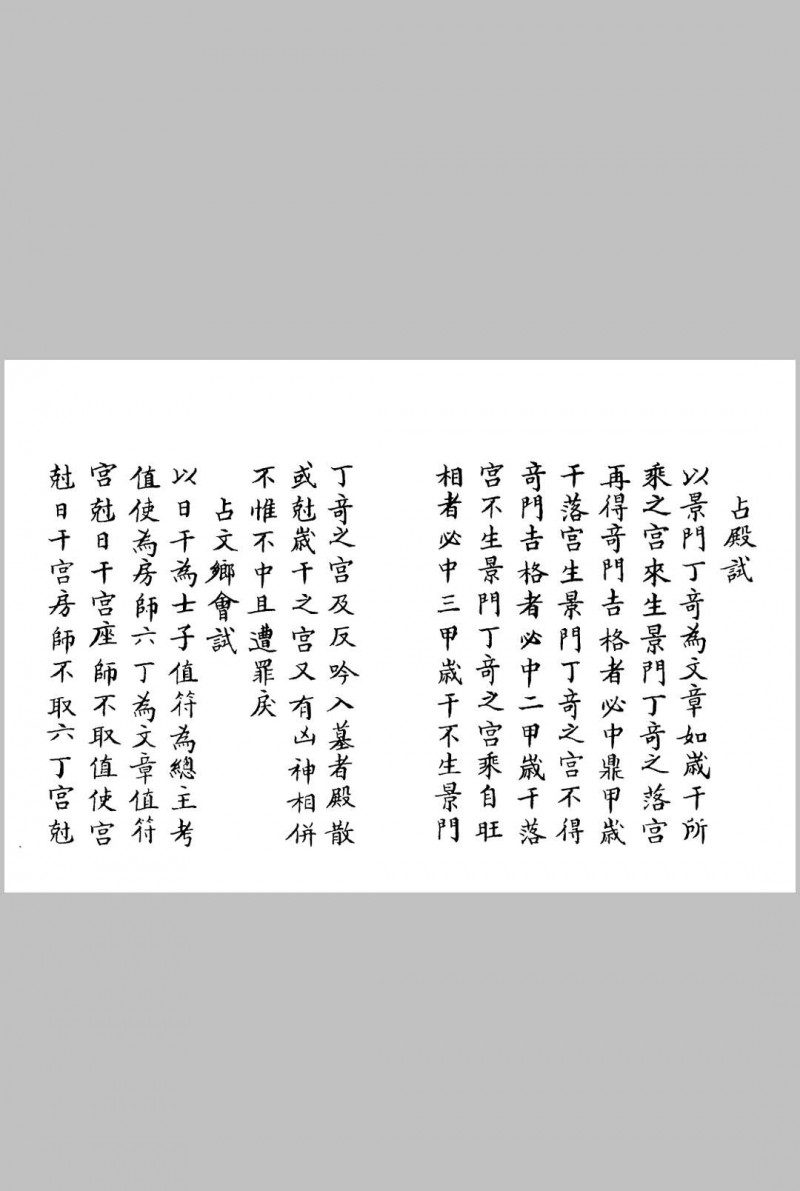 占殿試
以景門丁奇為文章如歲干所
乘之宮來生景門丁奇之落宮
再得奇門吉格者必中鼎甲歲
干落宮生景門丁奇之宮不得
奇門吉格者必中二甲歲干落
宮不生景門丁奇之宮乘自旺
相者必中三甲歲干不生景門
丁奇之宮及反吟入墓者殿散
或尅歲干之宮又有凶神相併
不惟不中且遭罪戾
占文鄉會試
以日干為士子值符為總主考
值使為房師六丁為文章值符
宮尅日干宮座師不取值使宮
尅日干宮房師不取六丁宮尅